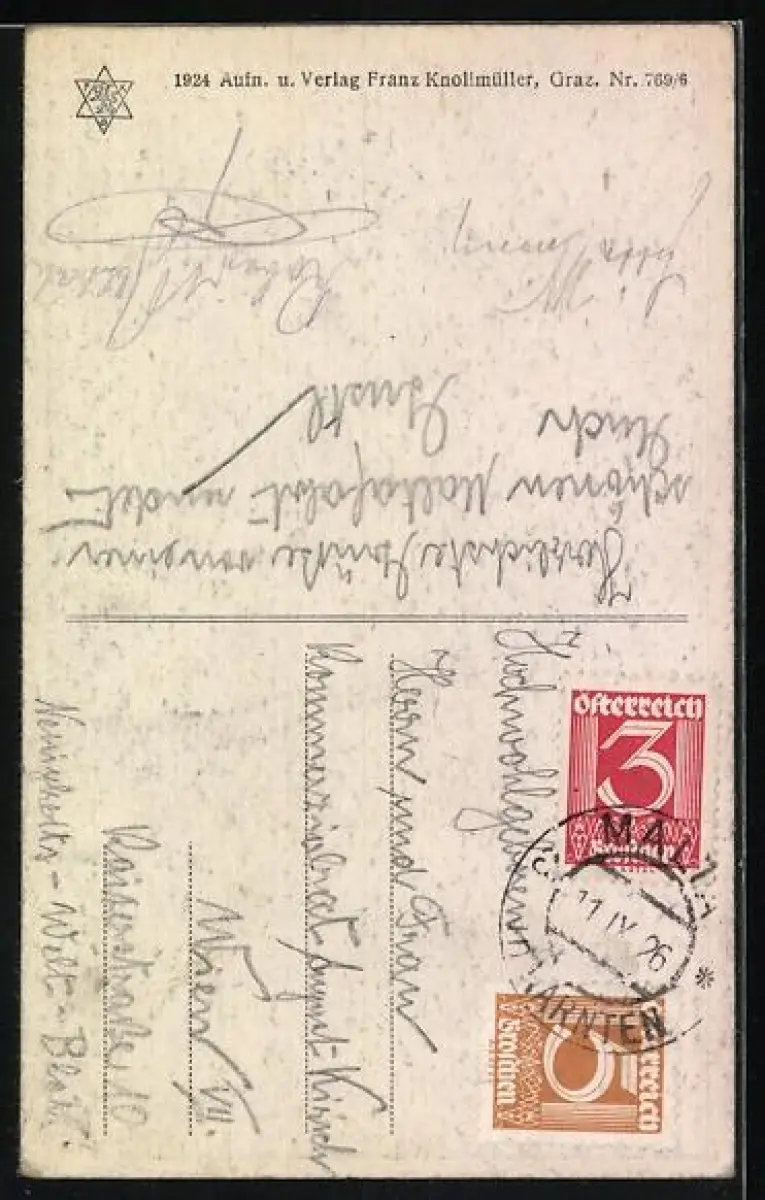 1924 Aufn. u. Verlag Franz Knollmüller, Graz. Nr. 769/6
Herzlichste Grüße von einer
schönen Maltafahrt sendet
Gustl
Hochwohlgeboren
Herrn und Frau
Kommerzialrat August Kirsch
Wien VII.
Kaiserstraße 10
Neuigkeits-Welt-Blatt.
Österreich
3
Groschen
MALTA
11 IV 26
KÄRNTEN
Österreich
5
Groschen